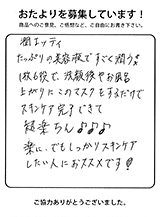 おたよりを募集しています!
商品へのご意見、ご感想など、ご自由にお書き下さい。
潤エッティ
たっぷりの美容液ですごく潤う♪
1枚6役で、洗顔後やお風呂
上がりにこのマスクをするだけで
スキンケア完了できて
超楽ちん♪♪♪
楽に、でもしっかりスキンケア
したい人におススメです!
ご協力ありがとうございました。